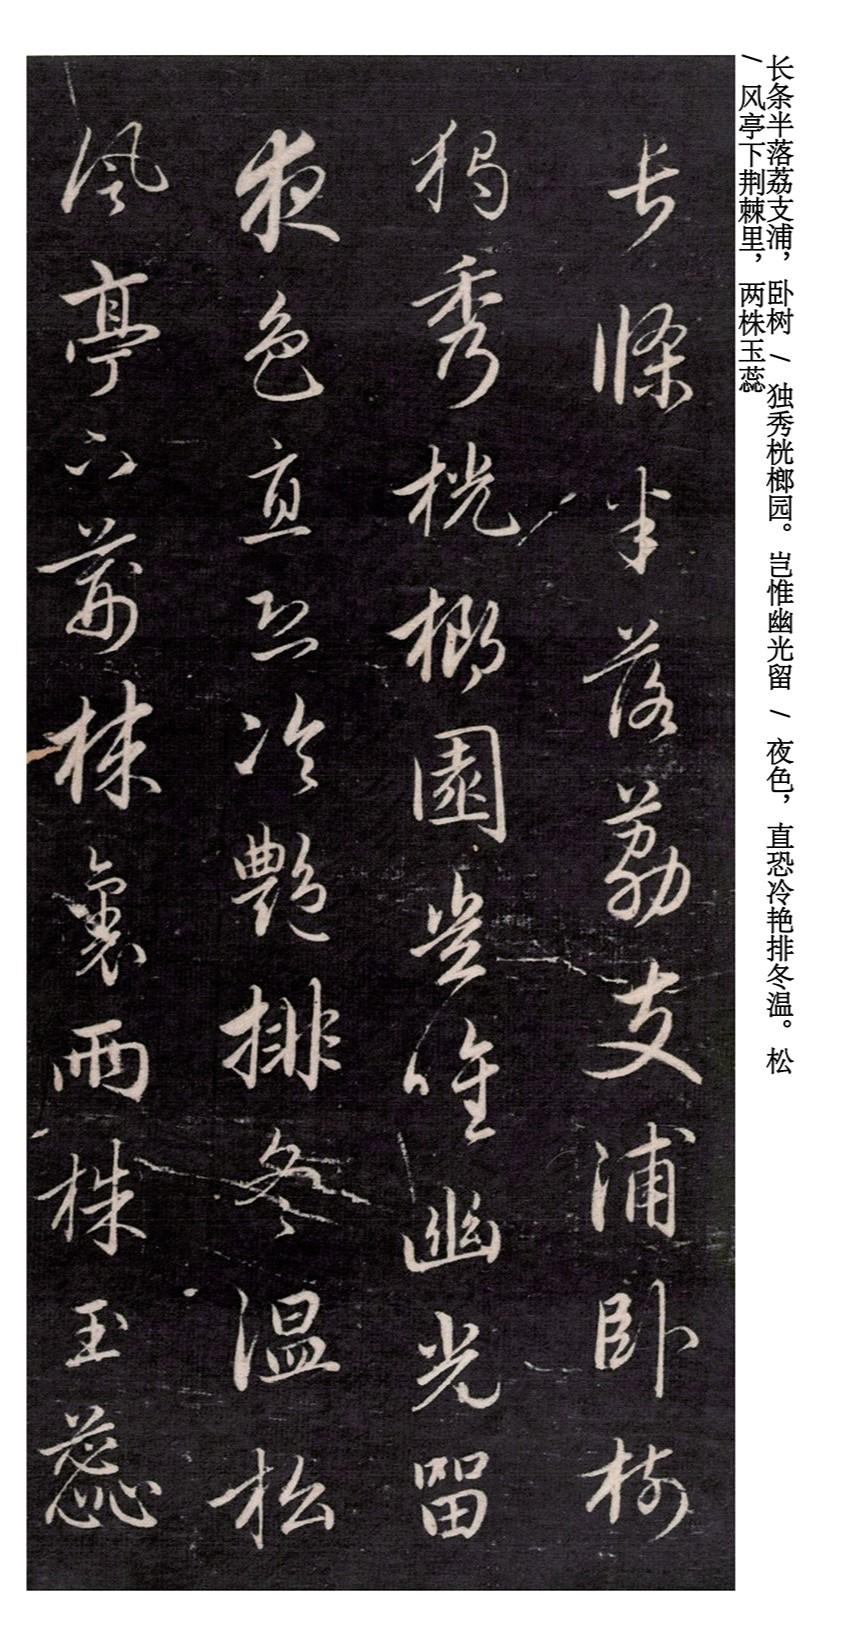 长条半落荔支浦，卧树 / 独秀桄榔园。岂惟幽光留 / 夜色，直恐冷艳排冬温。松
/ 风亭下荆棘里，两株玉蕊
長條半落荔支浦卧樹
獨秀桄榔園豈唯幽光留
夜色直恐冷艷排冬温松
風亭下荊棘裏兩株玉蕊